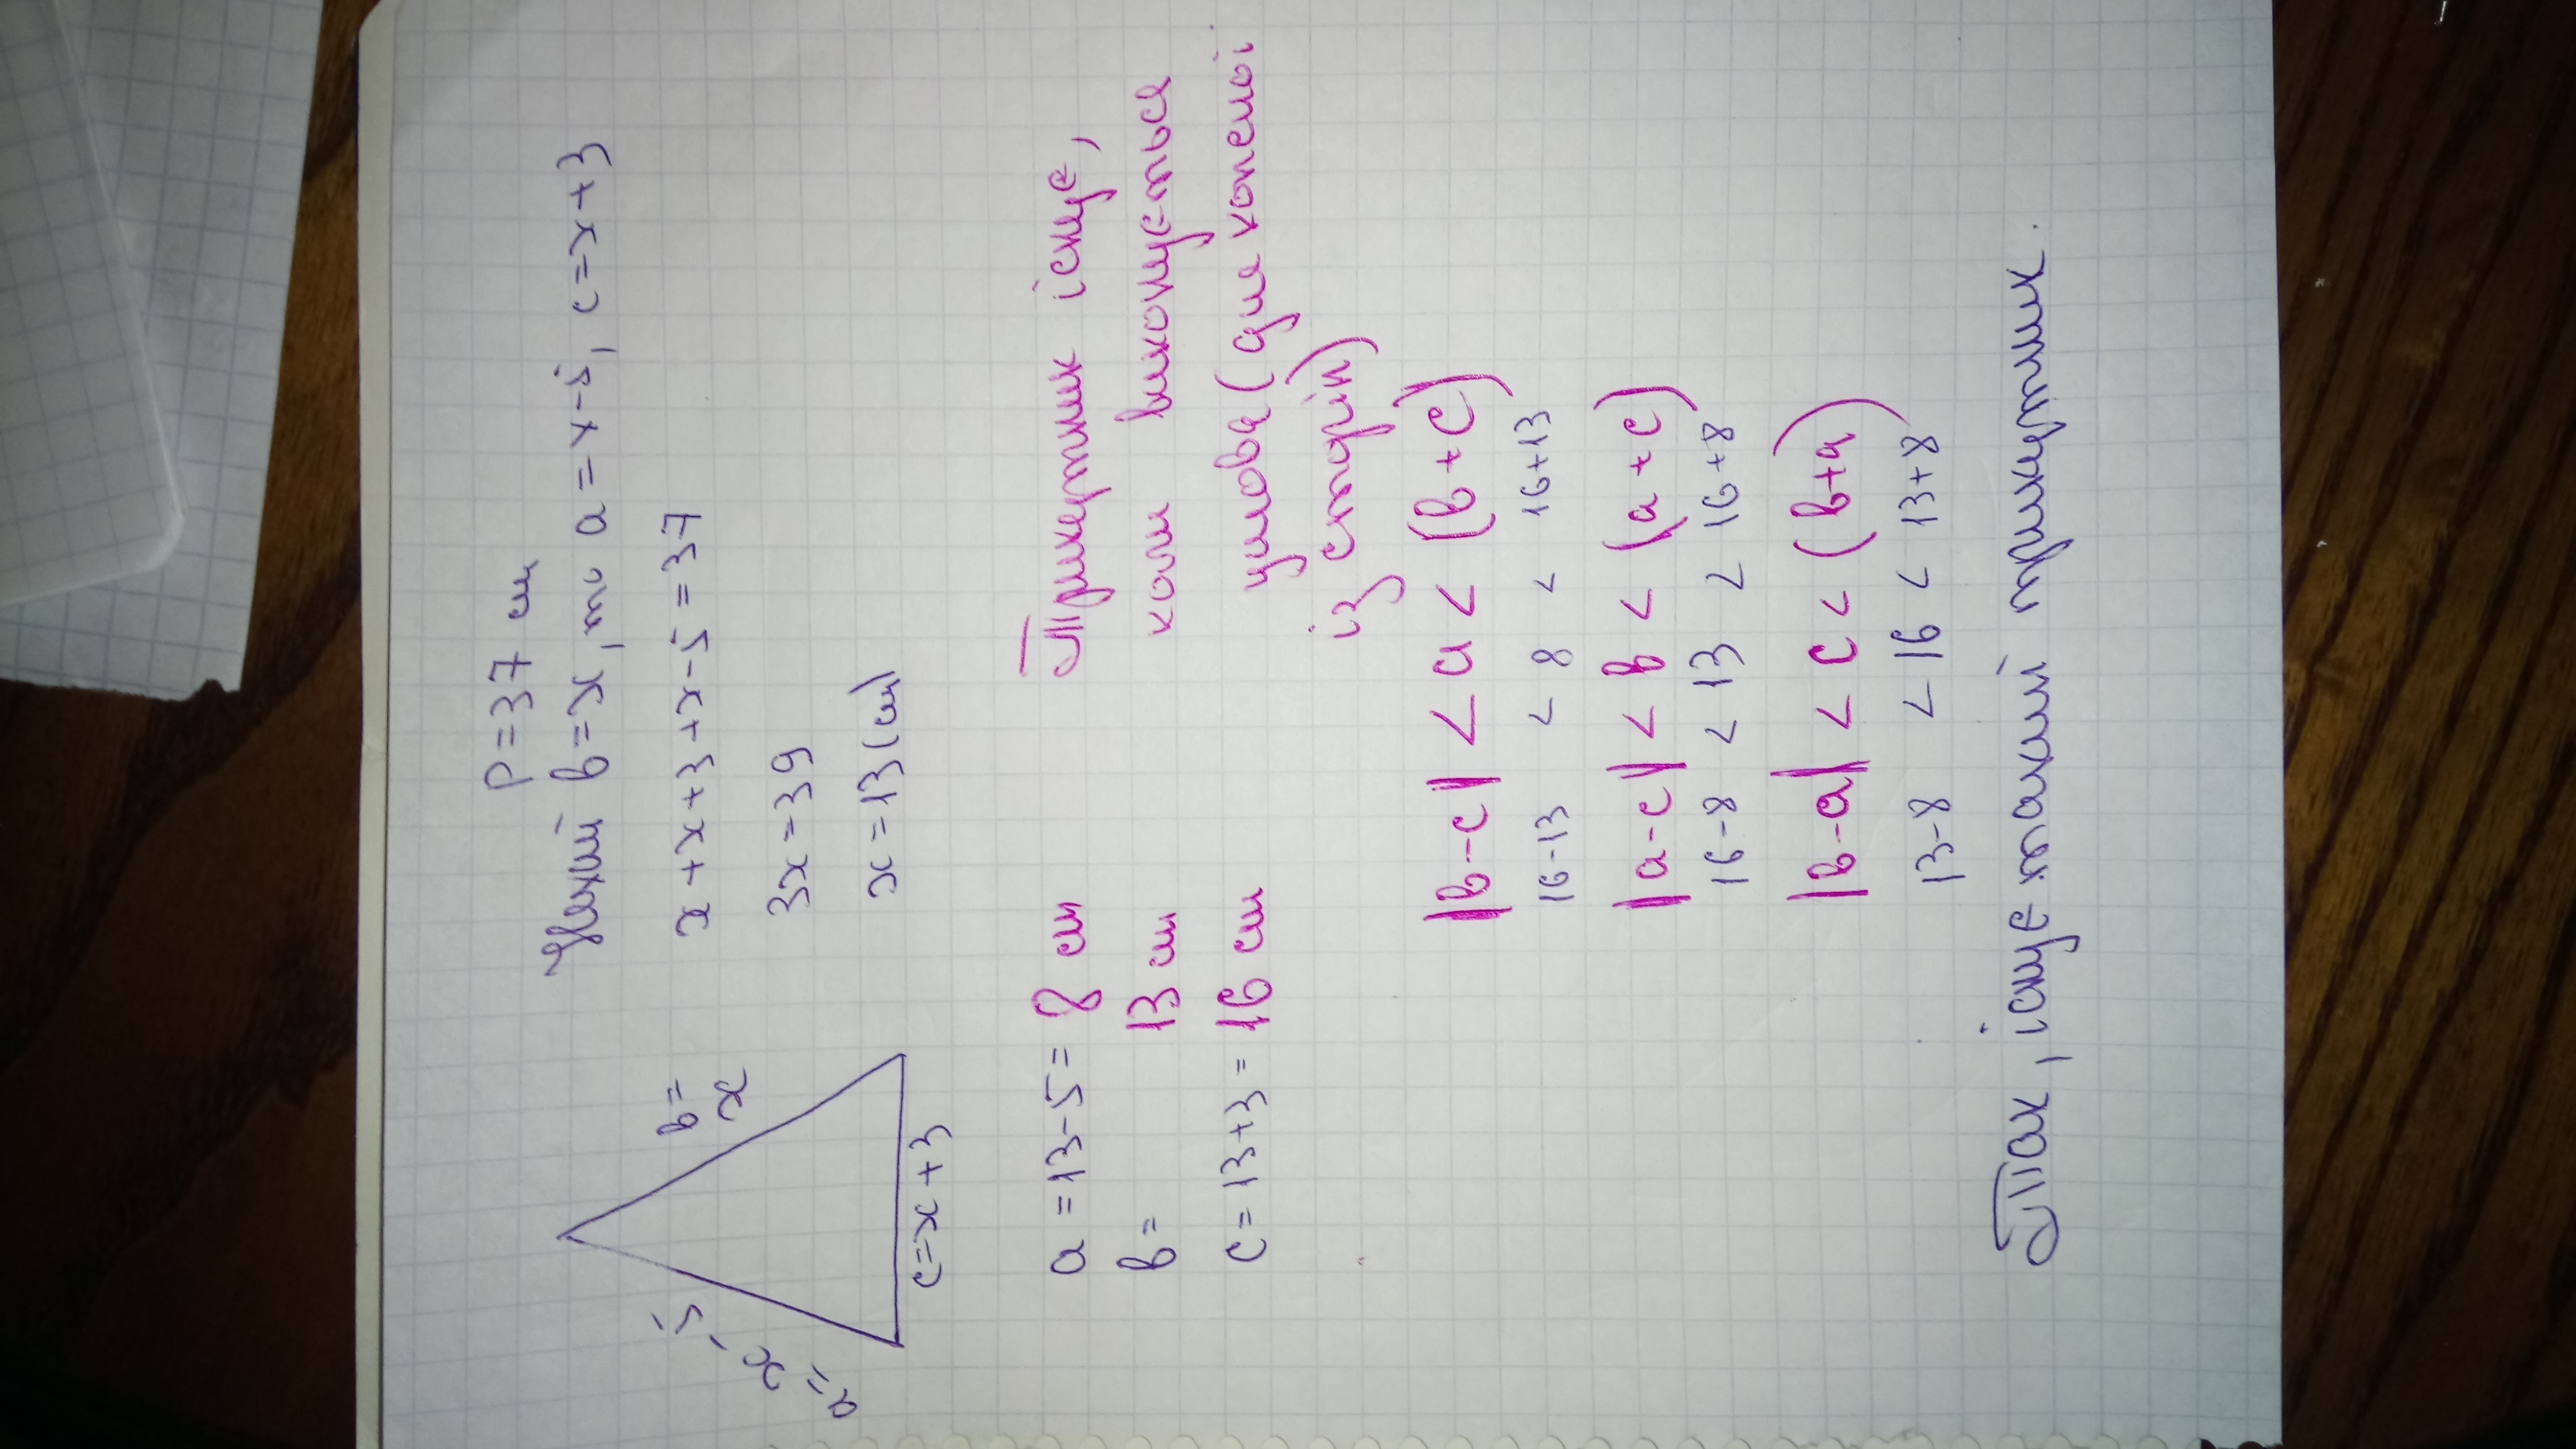 P=37 см
Нехай b=x, то a=x-5, c=x+3
x+x+3+x-5=37
3x=39
x=13(см)
b=
x
a=
x-5
c=x+3
a=13-5= 8 см
b= 13 см
c=13+3= 16 см
Трикутник існує,
коли виконується
умова (для кожної
із сторін)
|b-c| < a < (b+c)
16-13 < 8 < 16+13
|a-c| < b < (a+c)
16-8 < 13 < 16+8
|b-a| < c < (b+a)
13-8 < 16 < 13+8
Так, існує такий трикутник.